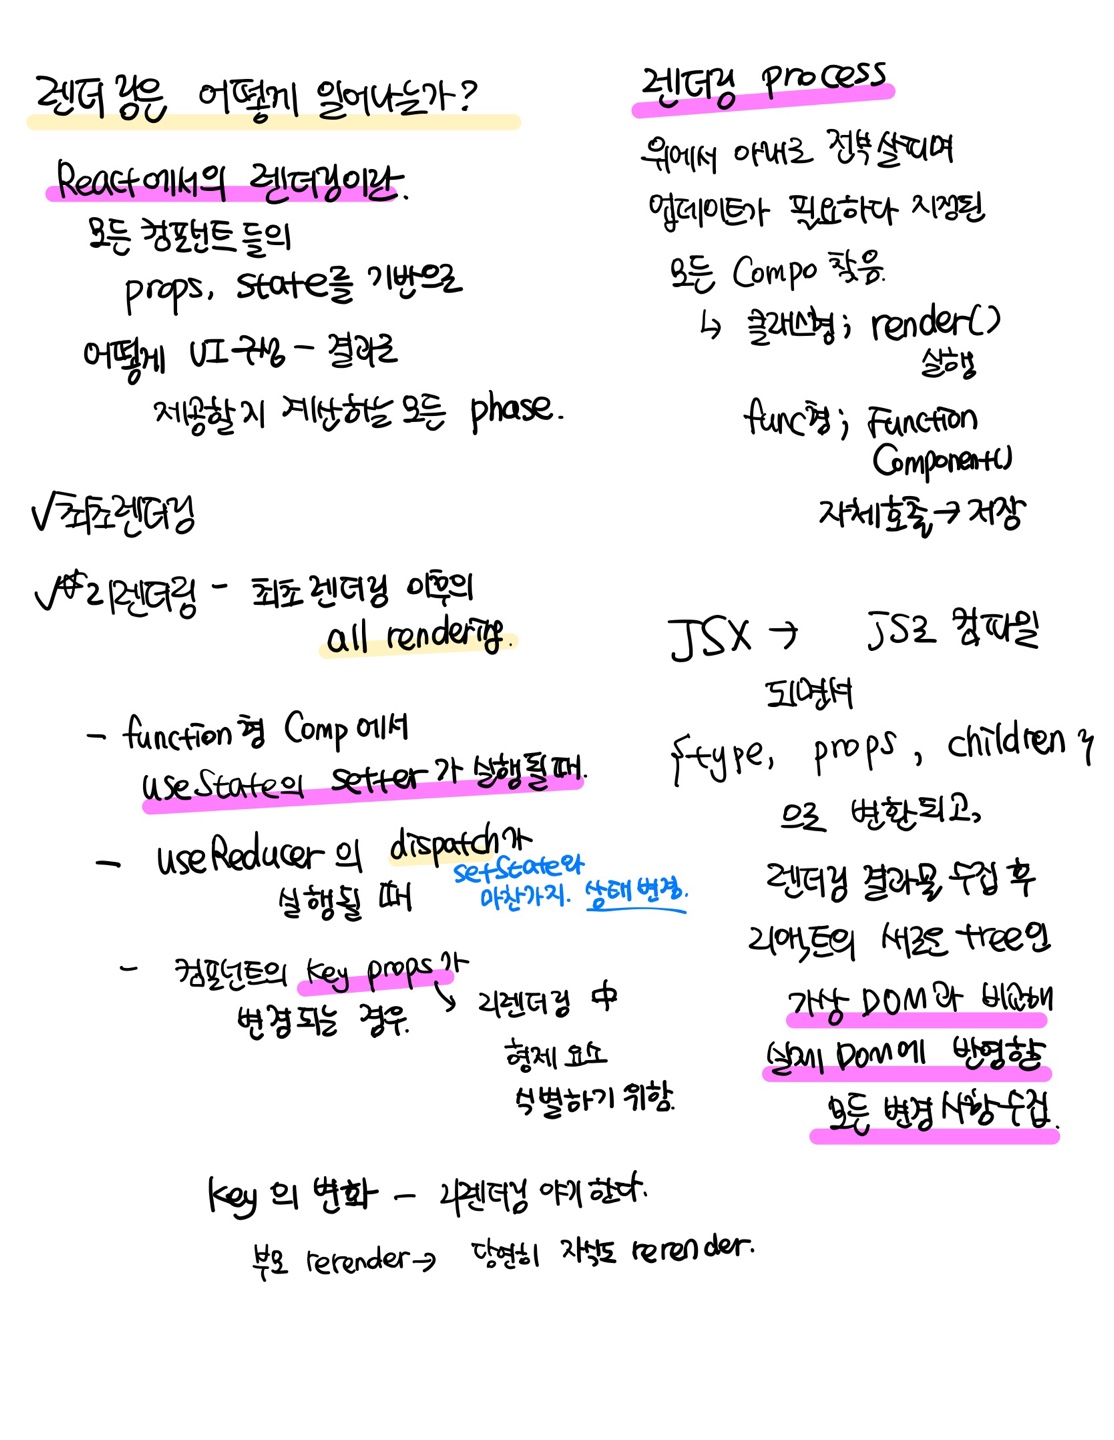 렌더링은 어떻게 일어나는가?
React에서의 렌더링이란.
모든 컴포넌트들의
props, state를 기반으로
어떻게 UI 구성 - 결과로
제공할지 계산하는 모든 phase.
√ 최초렌더링
√* 리렌더링 - 최초 렌더링 이후의
all rendering.
- function형 Comp에서
useState의 setter가 실행될 때.
- useReducer의 dispatch가
실행될 때
setState와
마찬가지. 상태 변경.
- 컴포넌트의 key props가
변경되는 경우.
↘ 리렌더링 中
형제 요소
식별하기 위함.
key의 변화 - 리렌더링 야기한다.
부모 rerender → 당연히 자식도 rerender.
렌더링 process
위에서 아래로 전부 살피며
업데이트가 필요하다 지정된
모든 Compo 찾음.
↳ 클래스형; render()
실행
func형; Function
Component()
자체호출 → 저장
JSX → JS로 컴파일
되면서
{type, props, children}
으로 변환되고,
렌더링 결과물 수집 후
리액트의 새로운 tree인
가상 DOM과 비교해
실제 DOM에 반영할
모든 변경 사항 수집.